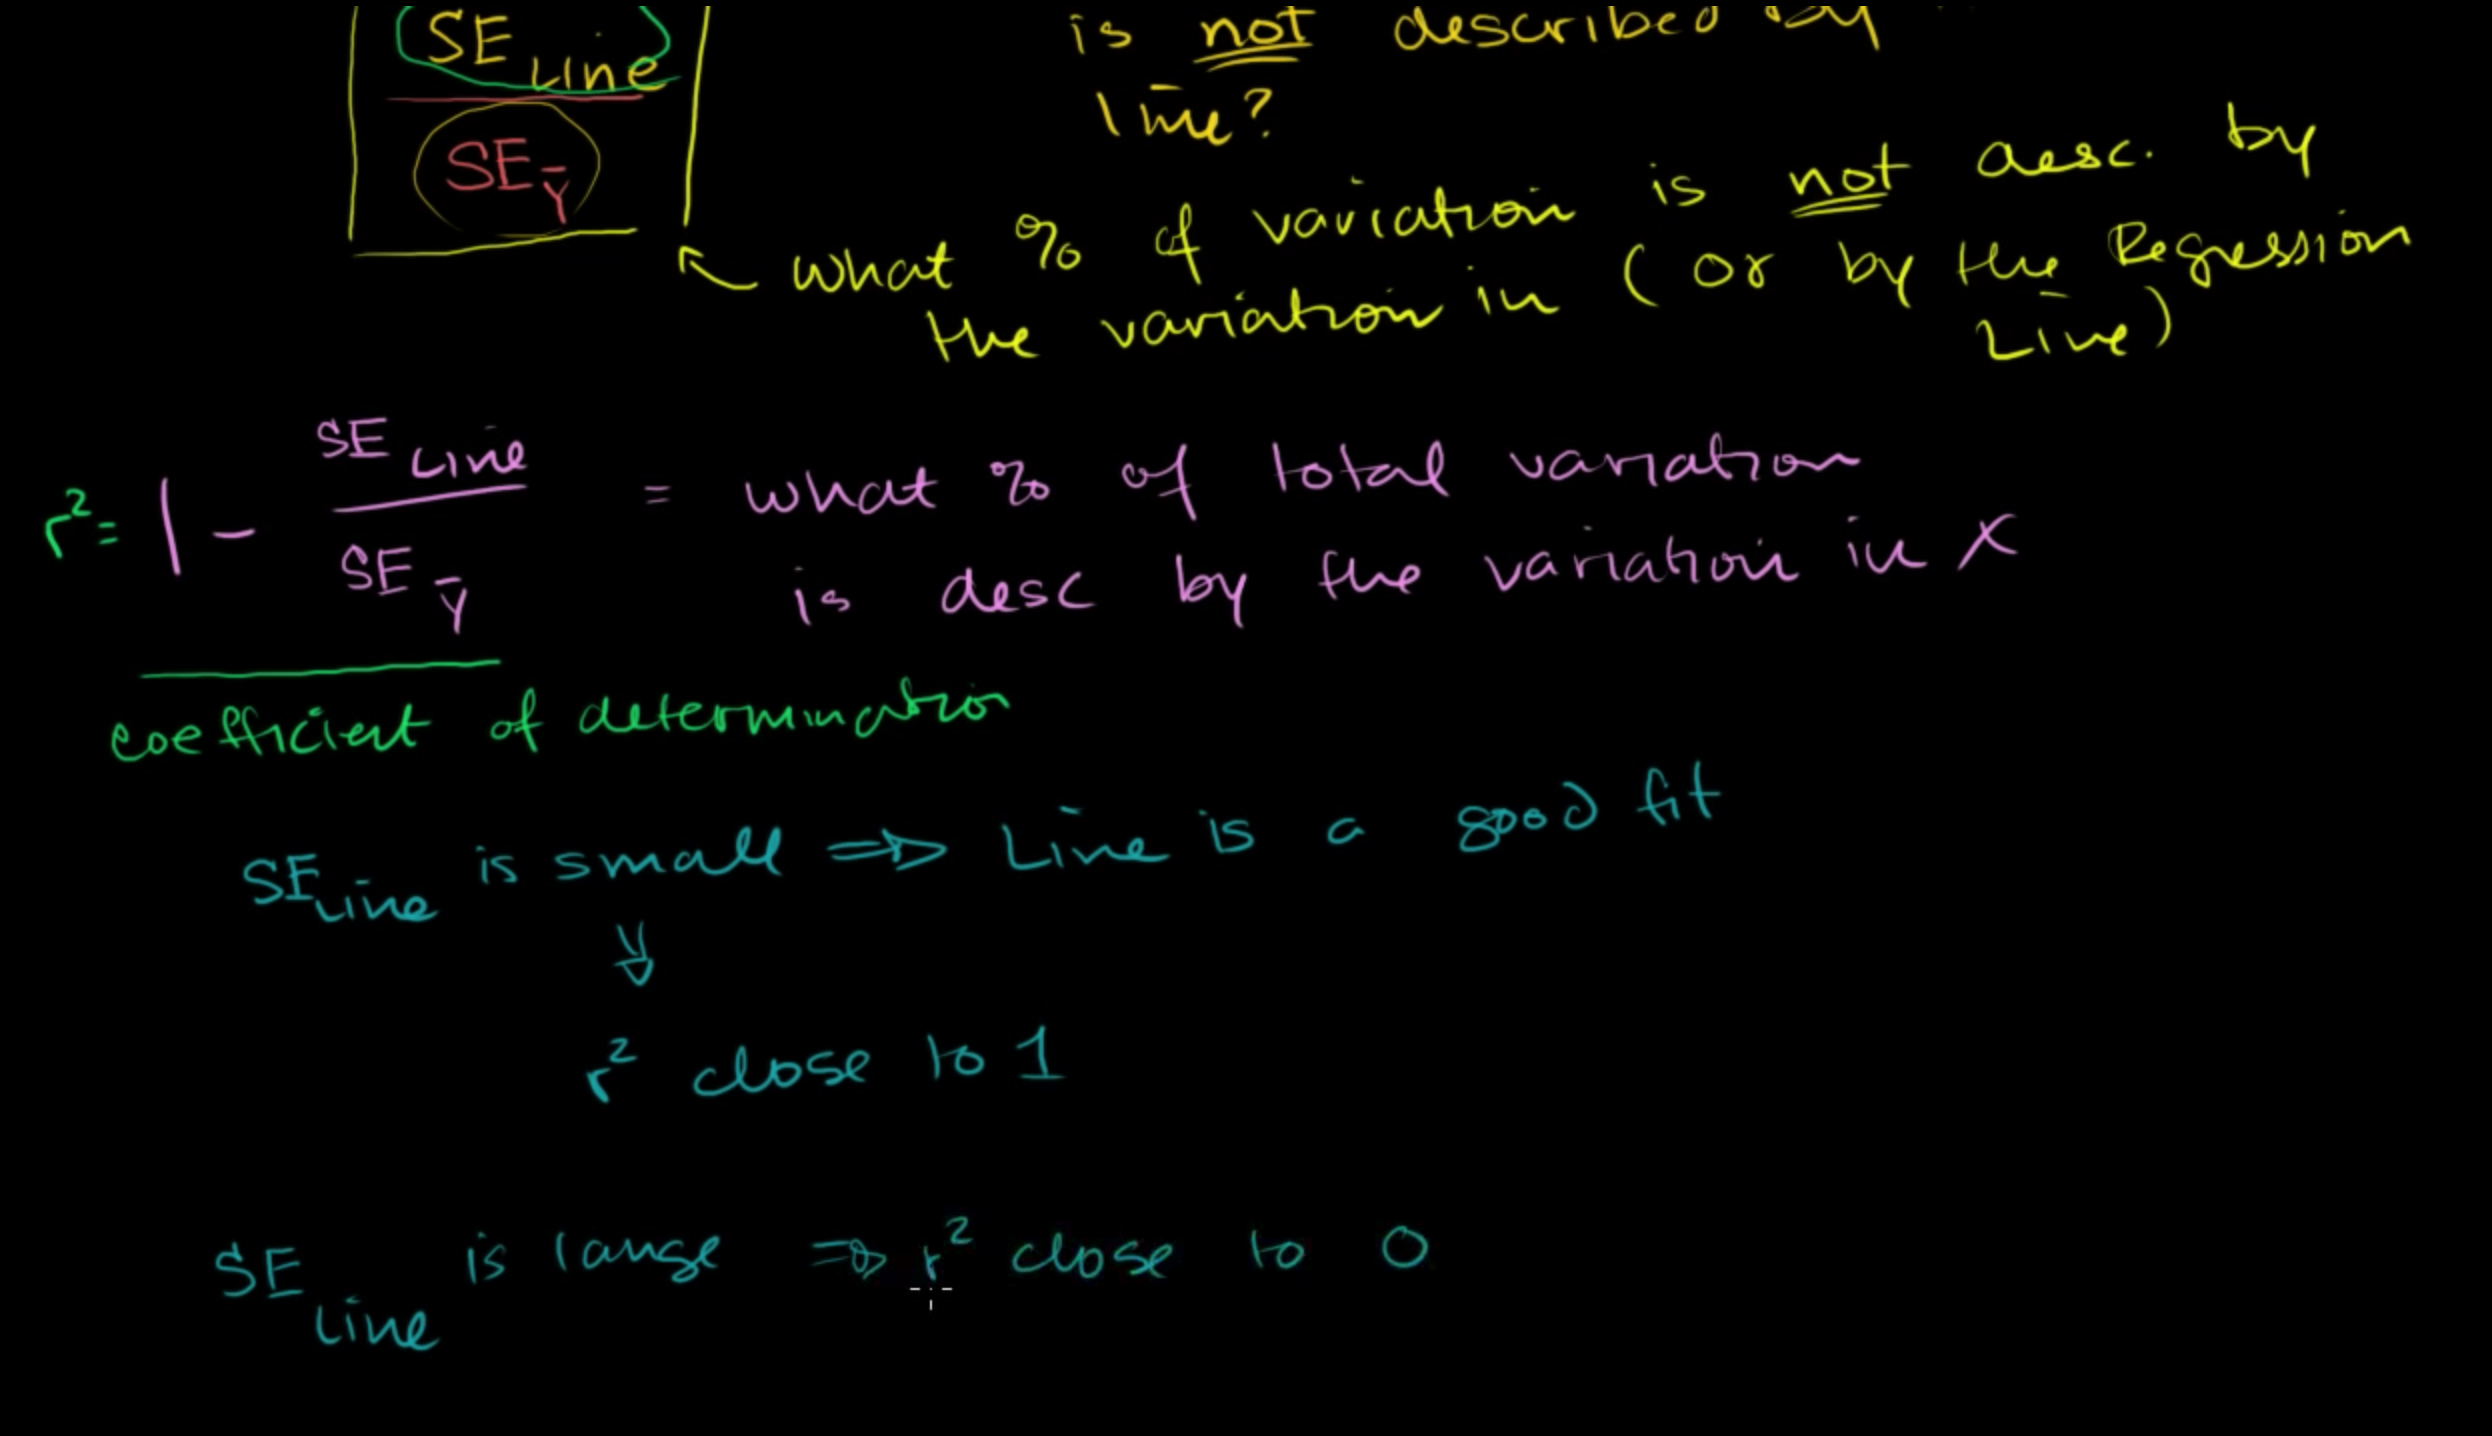 SE Line
is not described by
line?
SE Ȳ
what % of variation is not desc. by
the variation in (or by the Regression
Line)
r² = 1 - SE Line / SE Ȳ = what % of total variation
is desc by the variation in x
coefficient of determination
SE Line is small ⇒ Line is a good fit
⇓
r² close to 1
SE Line is large ⇒ r² close to 0